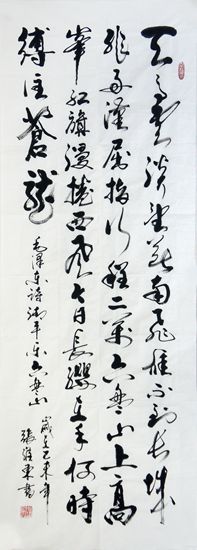 天高雲淡望斷南飛雁不到長城
非好漢屈指行程二萬六盤山上高
峯紅旗漫捲西風今日長纓在手何時
縛住蒼龍
毛澤東詩清平乐六盘山
歲在乙未年
張 東書